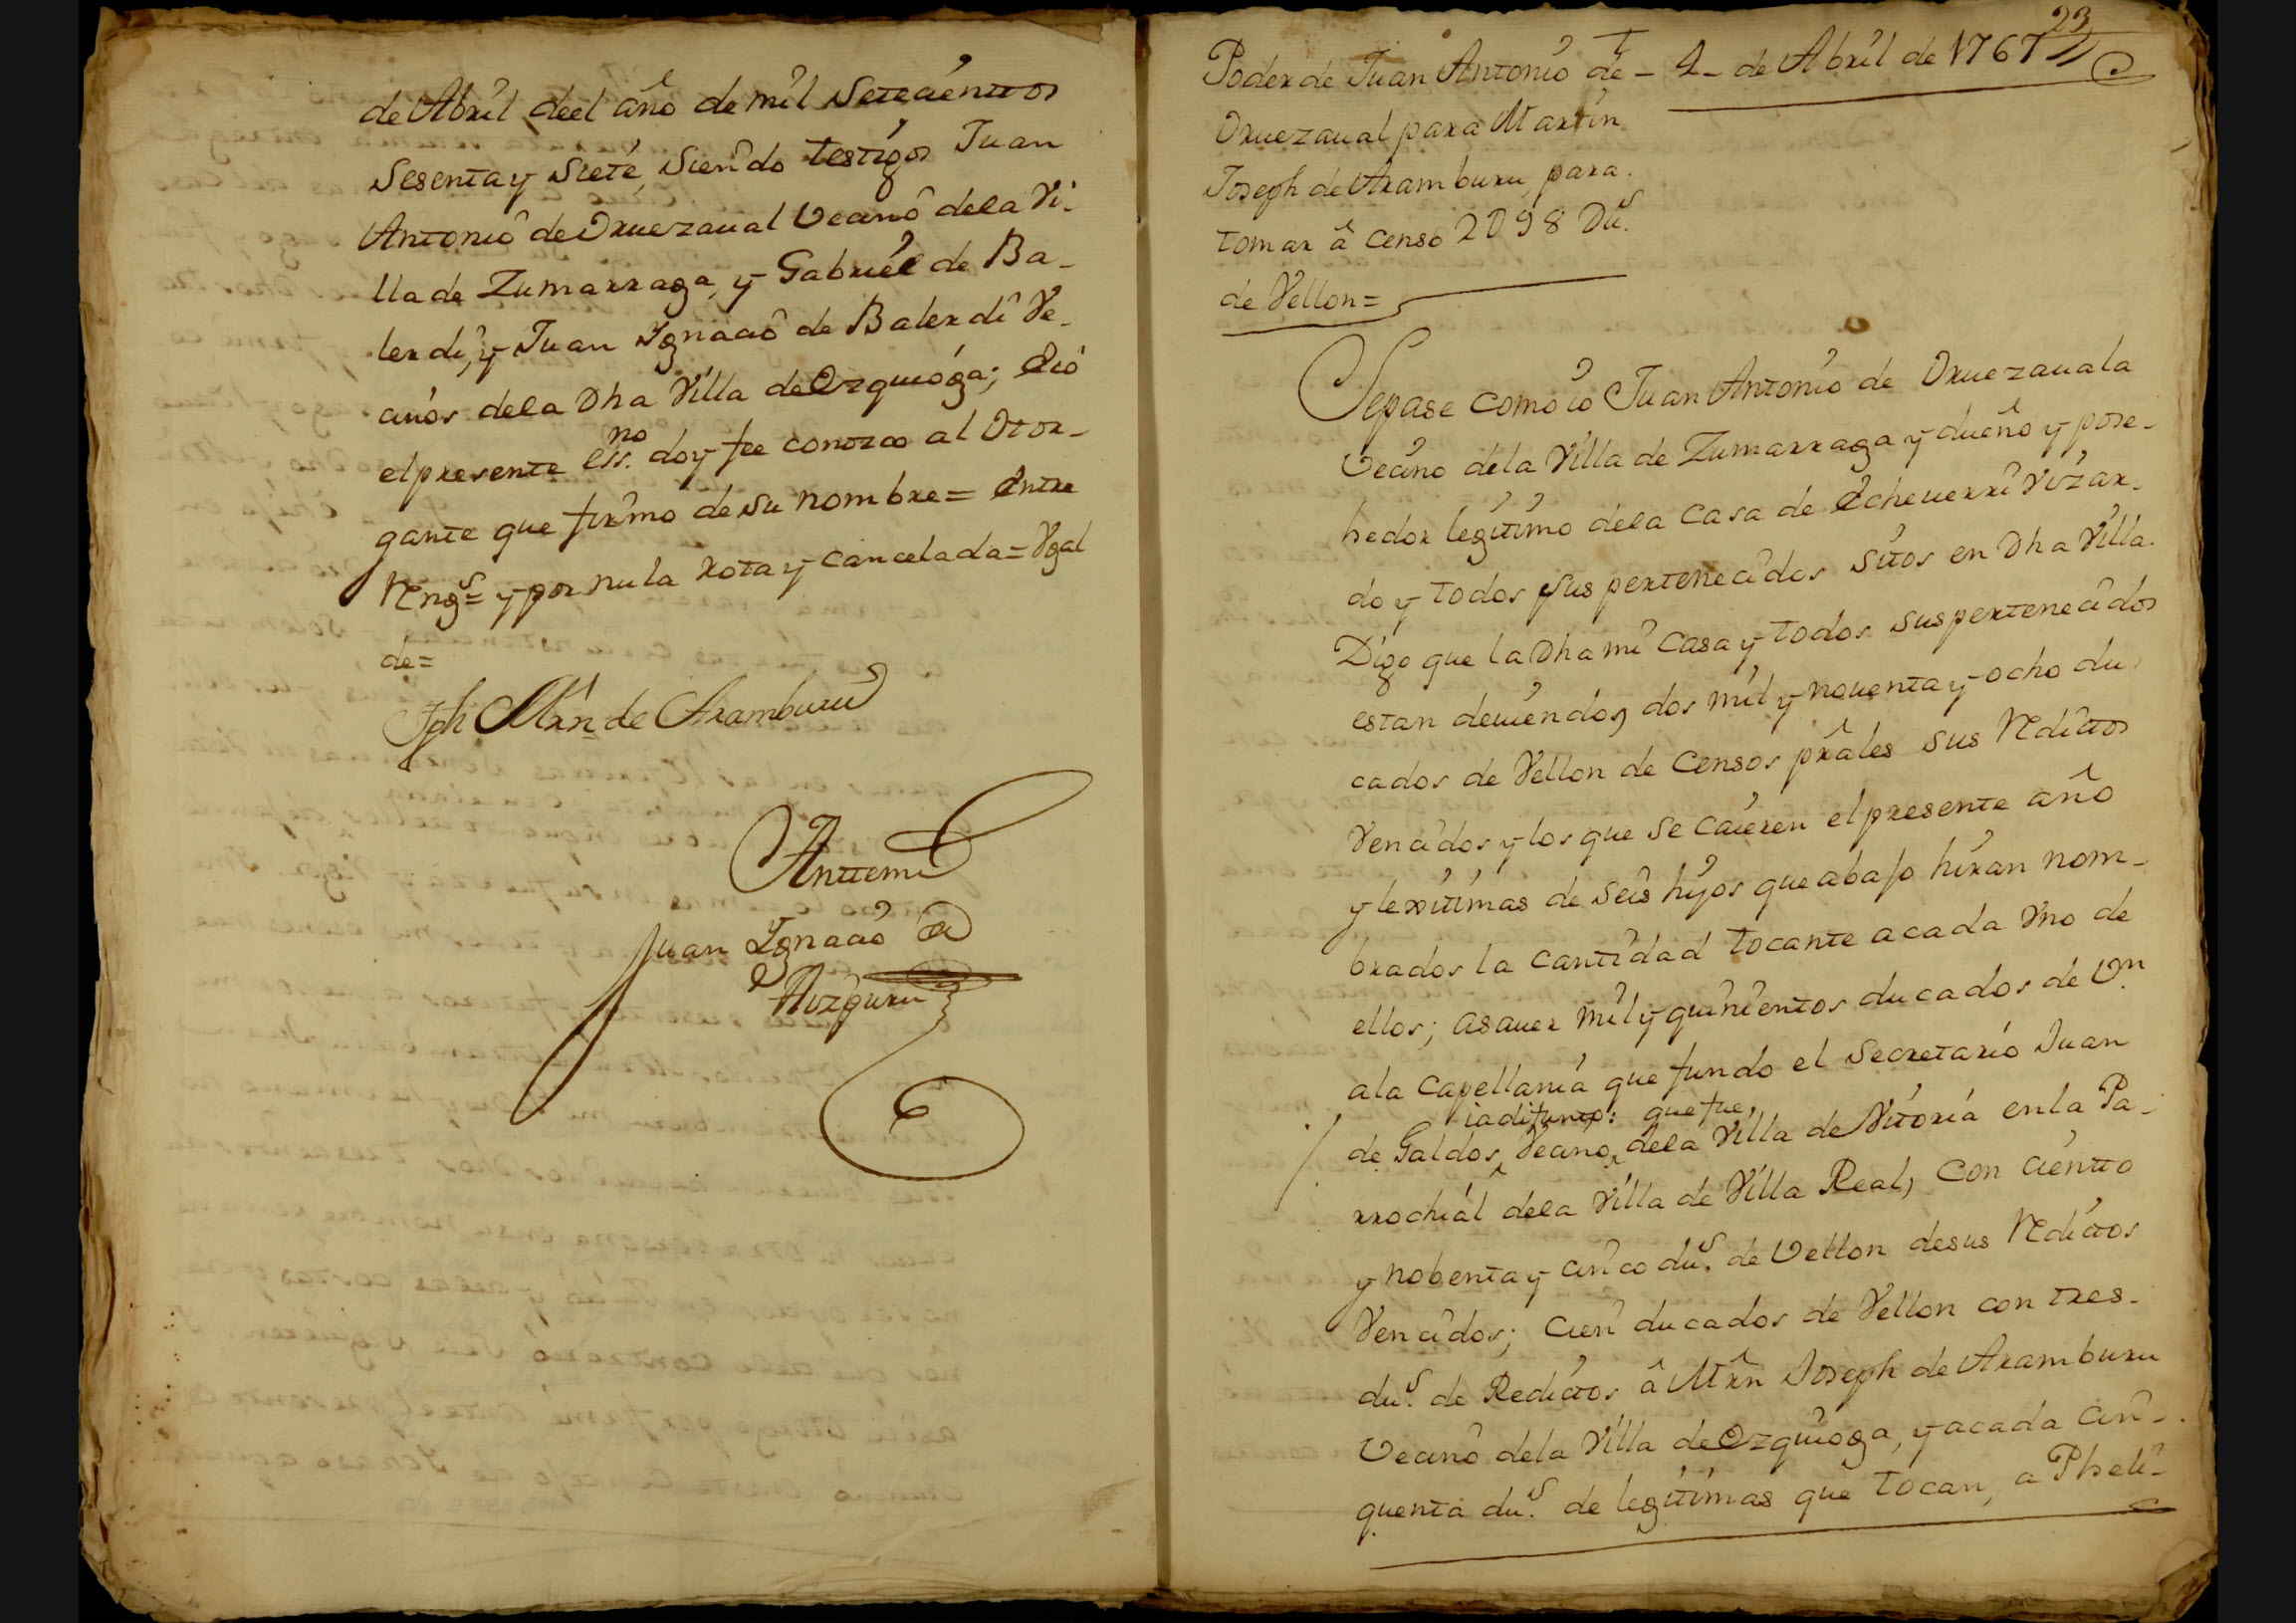 de Abril deel año de mil setecienttos
sesenta y siete, siendo testigos Juan
Antonio de Oruezaual Vecino dela Vi-
lla de Zumarraga, y Gabriel de Ba-
lerdi, y Juan Ignacio de Balerdi Ve-
cinos dela Dha Villa de Ezquioga; E io
el presente essno. doy fee conozco al Otor-
gante que firmo de su nombre = Entre
Rengs = y por nula rota y cancelada = Vgal
de =
Jph Mrn de Aramburu
Anttemi
Juan Ignacio de
Aizpuru
23
Poder de Juan Antonio de
Oruezaual para Martin
Joseph de Aramburu, para
tomar â censo 2098 Dus.
de Vellon =
4 - de Abril de 1767
Sepase como io Juan Antonio de Oruezauala
Vecino dela Villa de Zumarraga y dueño y pose-
hedor legitimo dela Casa de Echeuerri Vizar-
do y todos sus pertenecidos sitos en Dha Villa
Digo que la Dha mi Casa y todos sus pertenecidos
estan deuiendo, dos mil y nouenta y ocho du-
cados de Vellon de Censos prâles sus Redittos
Vencidos y los que se caieren el presente año
y lexitimas de seis hijos que abajo hiran nom-
brados la cantidad tocante acada Vno de
ellos; asauer mil y quinientos ducados de Vn.
ala Capellania que fundo el Secretario Juan
ia difunto: que fue,
de Galdos, Vecino, dela Villa de Vitoria en la Pa-
rrochial dela Villa de Villa Real, con cientto
y nobenta y cinco dus. de Vellon de sus Redictos
Vencidos; cien ducados de Vellon con tres
dus. de Redictos â Mrn Joseph de Aramburu
Vecino dela Villa de Ezquioga, y acada cin-
quenta dus. de legitimas que tocan, a Pheli-